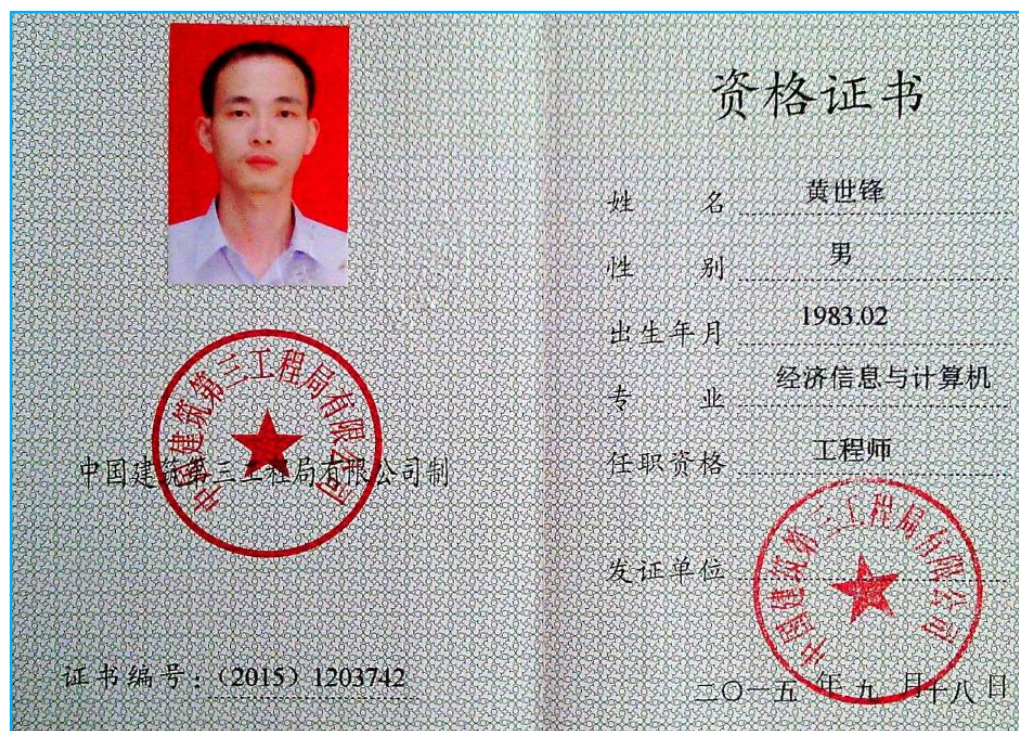 中国建筑第三工程局有限公司
中国建筑第三工程局有限公司制
证书编号：(2015) 1203742
资格证书
姓 名 黄世锋
性 别 男
出生年月 1983.02
专 业 经济信息与计算机
任职资格 工程师
发证单位
中国建筑第三工程局有限公司
二〇一五 年 九 月十八 日